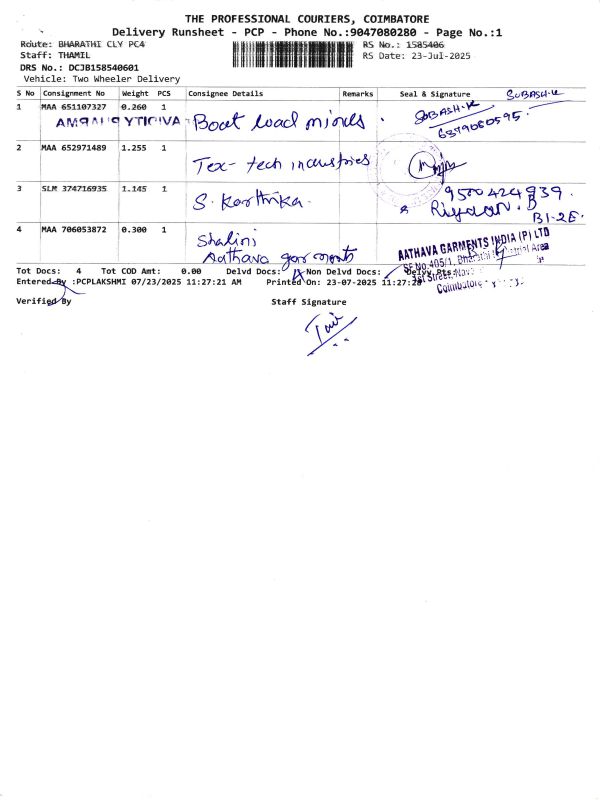 THE PROFESSIONAL COURIERS, COIMBATORE
Delivery Runsheet - PCP - Phone No.:9047080280 - Page No.:1
Route: BHARATHI CLY PC4 RS No.: 1585406
Staff: THAMIL RS Date: 23-Jul-2025
DRS No.: DCJB158540601
Vehicle: Two Wheeler Delivery
S No Consignment No Weight PCS Consignee Details Remarks Seal & Signature
SUBASH.K
1 MAA 651107327 0.260 1 Boat load minds. SUBASH.K
6379060595.
2 MAA 652971489 1.255 1 Tex-tech industries
3 SLM 374716935 1.145 1 S. Karthika. 9500424939.
Riyaan.B
B1-2E.
4 MAA 706053872 0.300 1 Shalini
Aathava garments
AATHAVA GARMENTS INDIA (P) LTD
SF.No.405/1, Bharathi Industrial Area
1st Street,
Coimbatore
Tot Docs: 4 Tot COD Amt: 0.00 Delvd Docs: Non Delvd Docs: Delvy Pts:
Entered By :PCPLAKSHMI 07/23/2025 11:27:21 AM Printed On: 23-07-2025 11:27:28
Verified By Staff Signature